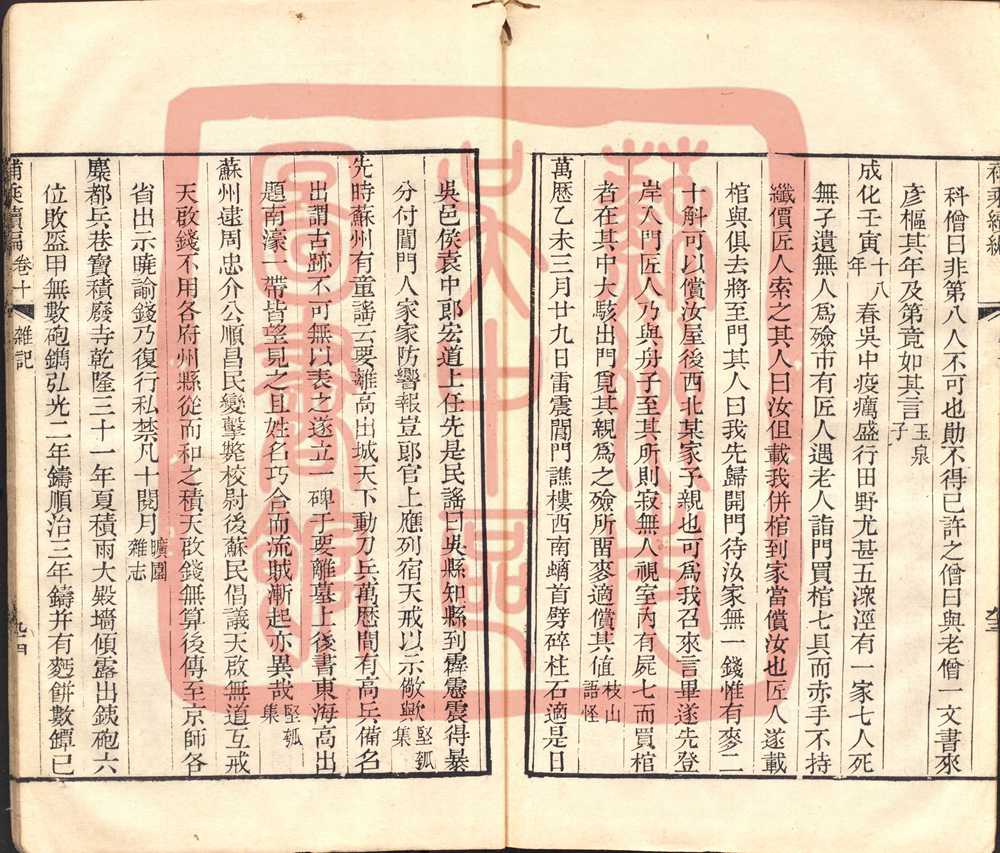 科僧曰非第八人不可也勛不得已許之僧曰與老僧一文書來
彥樞其年及第竟如其言玉泉子
成化壬寅十八年春吳中疫癘盛行田野尤甚五漈涇有一家七人死
無孑遺無人爲殮市有匠人遇老人詣門買棺七具而赤手不持
纖價匠人索之其人曰汝但載我併棺到家當償汝也匠人遂載
棺與俱去將至門其人曰我先歸開門待汝家無一錢惟有麥二
十斛可以償汝屋後西北某家子親也可爲我召來言畢遂先登
岸入門匠人乃與舟子至其所則寂無人視室內有屍七而買棺
者在其中大駭出門覓其親爲之殮所畱麥適償其值枝山語怪
萬歷乙未三月廿九日雷震閶門譙樓西南螭首劈碎柱石適是日
吳邑侯袁中郎宏道上任先是民謠曰吳縣知縣到霹靂震得暴
分付閶門人家家防響報豈郎官上應列宿天戒以示儆歟堅瓠集
先時蘇州有童謠云要離高出城天下動刀兵萬歷間有高兵備名
出謂古跡不可無以表之遂立一碑于要離墓上後書東海高出
題南濠一帶皆望見之且姓名巧合而流賊漸起亦異哉堅瓠集
蘇州逮周忠介公順昌民變擊斃校尉後蘇民倡議天啟無道互戒
天啟錢不用各府州縣從而和之積天啟錢無算後傳至京師各
省出示曉諭錢乃復行私禁凡十閱月曠園雜志
麋都兵巷寶積廢寺乾隆三十一年夏積雨大殿墻傾露出銕砲六
位敗盔甲無數砲鐫弘光二年鑄順治三年鑄并有麪餅數罈已
卷十
雜記
九四